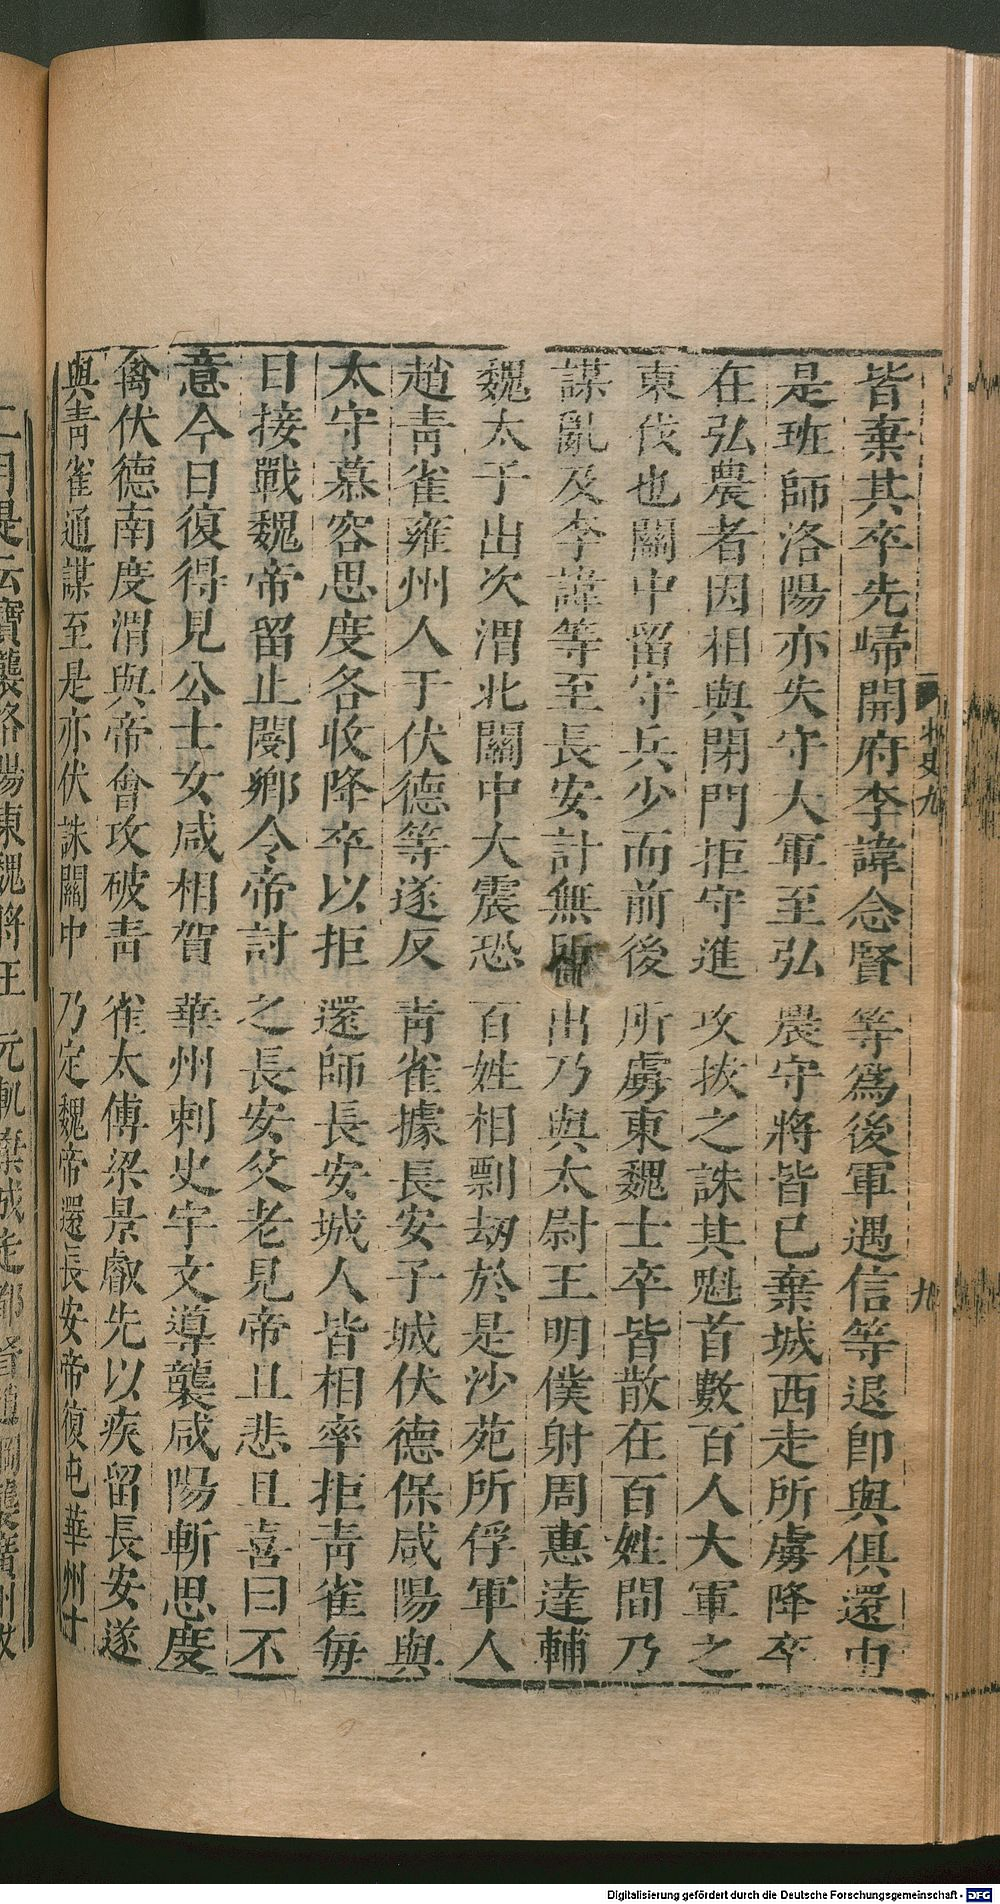 皆棄其卒先歸開府李諱念賢等爲後軍遇信等退卽與俱還由
是班師洛陽亦失守大軍至弘農守將皆已棄城西走所虜降卒
在弘農者因相與閉門拒守進攻拔之誅其魁首數百人大軍之
東伐也關中留守兵少而前後所虜東魏士卒皆散在百姓間乃
謀亂及李諱等至長安計無所出乃與太尉王明僕射周惠達輔
魏太子出次渭北關中大震恐百姓相剽劫於是沙苑所俘軍人
趙靑雀雍州人于伏德等遂反靑雀據長安子城伏德保咸陽與
太守慕容思度各收降卒以拒還師長安城人皆相率拒靑雀每
日接戰魏帝留止閿鄉令帝討之長安父老見帝且悲且喜曰不
意今日復得見公士女咸相賀華州刺史宇文導襲咸陽斬思度
禽伏德南度渭與帝會攻破靑雀太傅梁景叡先以疾留長安遂
與靑雀通謀至是亦伏誅關中乃定魏帝還長安帝復屯華州十
二月是云寶襲洛陽東魏將王元軌棄城走都督趙剛襲廣州拔
北史九
九
Digitalisierung gefördert durch die Deutsche Forschungsgemeinschaft - DFG